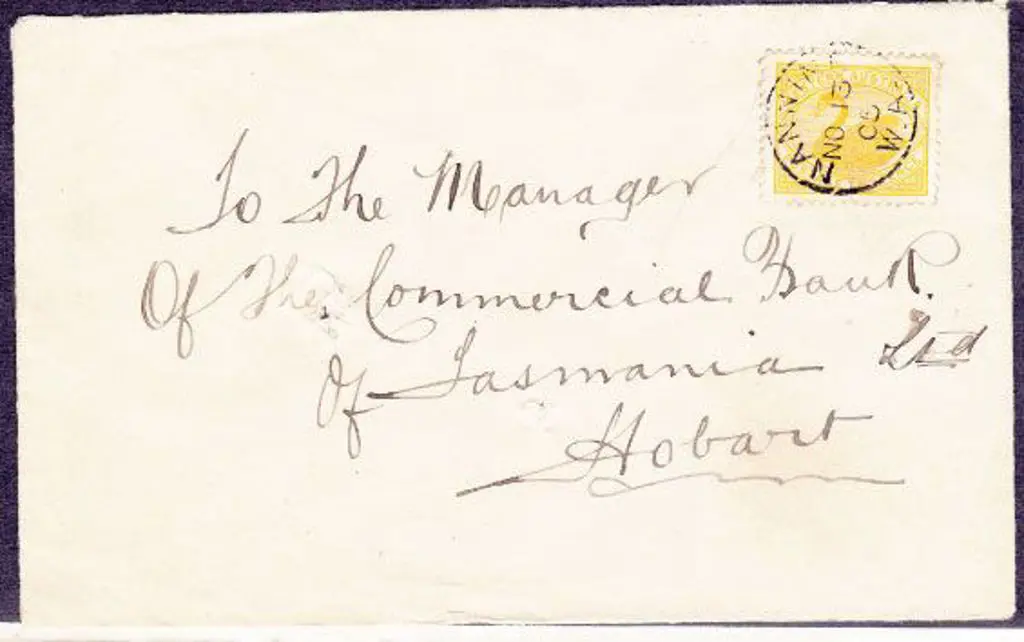 To The Manager
Of The Commercial Bank.
Of Tasmania Ltd
Hobart
NO 13
06
W.A